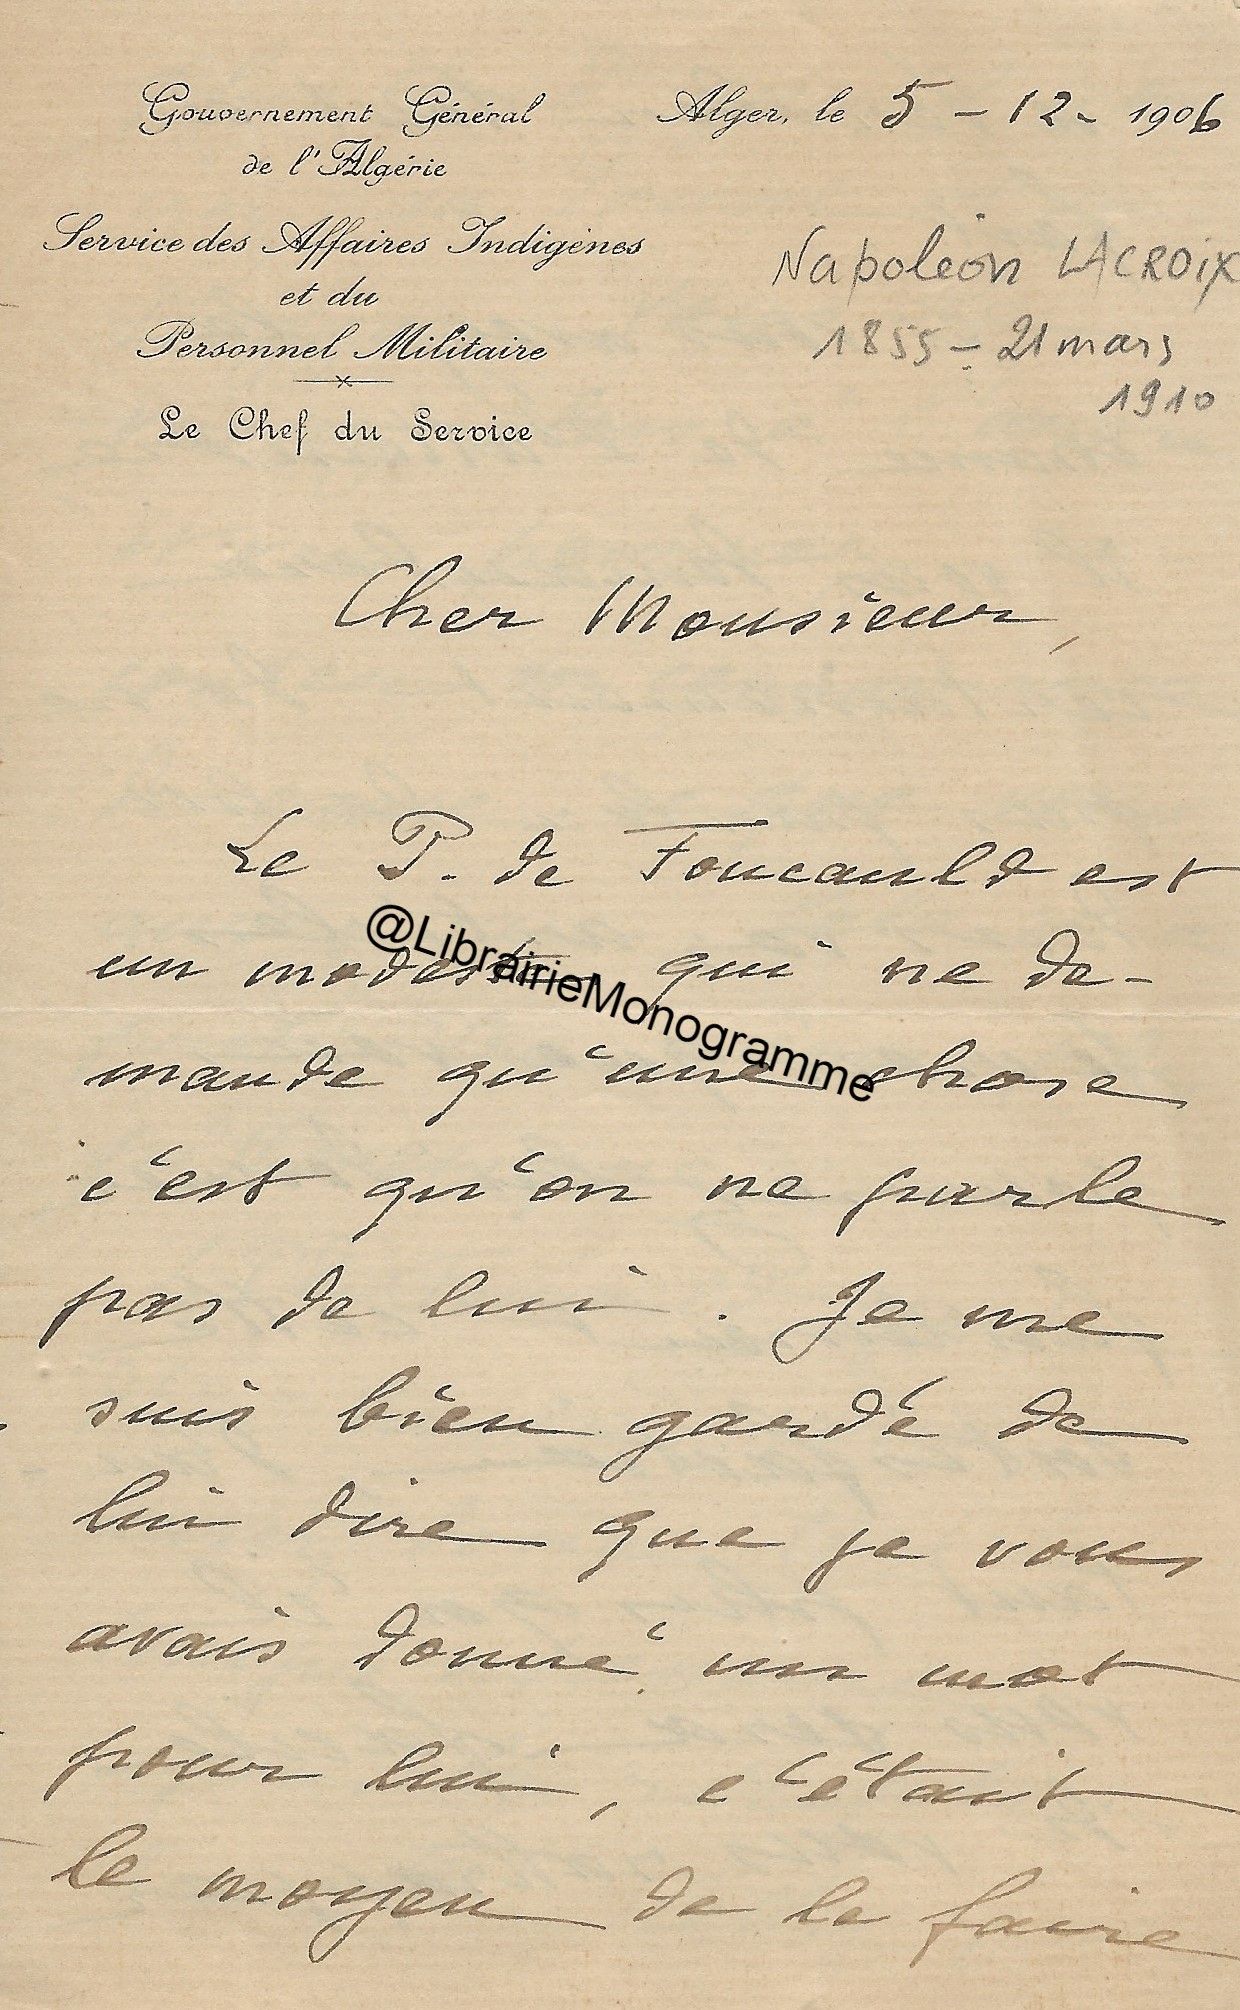 Gouvernement Général
de l'Algérie
Service des Affaires Indigènes
et du
Personnel Militaire
Le Chef du Service
Alger, le 5 - 12 - 1906
Napoléon LACROIX
1855 - 21 mars
1910
Cher Monsieur,
Le P. de Foucauld est
un modeste qui ne de-
mande qu'une chose
c'est qu'on ne parle
pas de lui. Je me
suis bien gardé de
lui dire que je vous
avais donné un mot
pour lui, c'était
le moyen de le faire
@LibrairieMonogramme